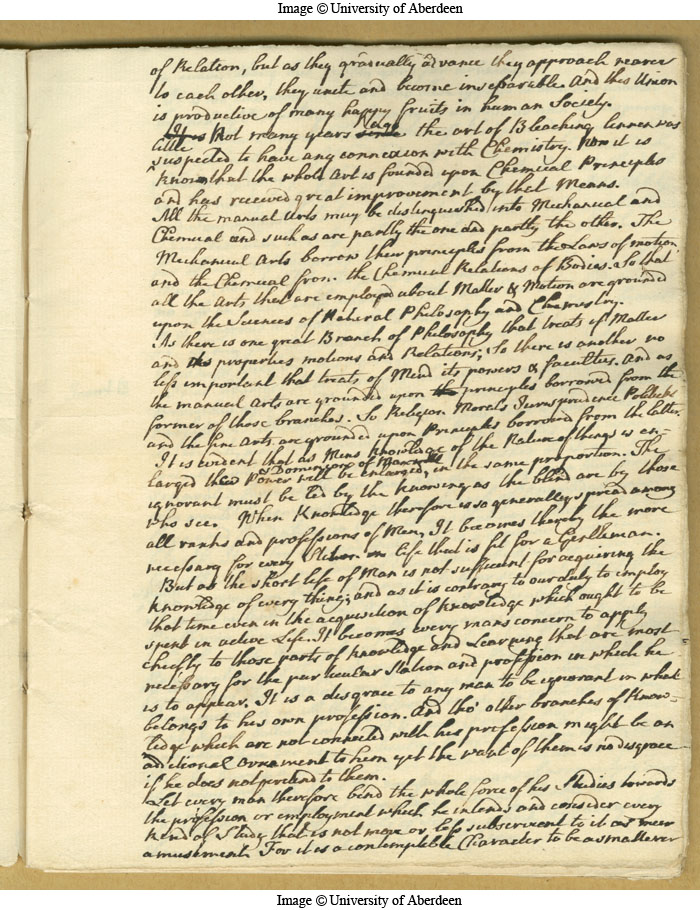 Image © University of Aberdeen
of Relation, but as they gradually advance they approach nearer
to each other, they unite and become inseparable. And this Union
is productive of many happy fruits in human Society.
It is Not many years since ago the art of Bleaching linnen was
little
suspected to have any connexion with Chemistry. Now it is
known that the whole Art is founded upon Chemical Principles
and has received great improvement by that Means.
All the manual Arts may be distinguished into Mechanical and
Chemical and such as are partly the one and partly the other. The
Mechanical Arts borrow their principles from the Laws of motion
and the Chemical from the Chemical Relations of Bodies. So that
all the Arts that are employed about Matter & Motion are grounded
upon the Sciences of Natural Philosophy and Chemistry.
As there is one great Branch of Philosophy that treats of Matter
and its properties motions and Relations; So there is another no
less important that treats of Mind its powers & faculties. And as
the manual Arts are grounded upon the principles borrowed from the
former of those branches. So Religion Morals Jurisprudence Politicks
and the fine Arts are grounded upon Principles borrowed from the latter.
It is evident that as Mens Knowledge of the Nature of things is en-
larged their Power will be enlarged, in the same proportion. The
ignorant must be led by the Knowing as the blind are by those
who see. When Knowledge therefore is so generally spread among
all ranks and professions of Men, It becomes thereby the more
necessary for every Station in life that is fit for a Gentleman.
But as the short life of Man is not sufficient for acquiring the
Knowledge of every thing; and as it is contrary to our duty to employ
that time even in the acquisition of Knowledge which ought to be
spent in active Life. It becomes every mans concern to apply
chiefly to those parts of Knowledge and Learning that are most
necessary for the particular Station and profession in which he
is to appear. It is a disgrace to any man to be ignorant in what
belongs to his own profession. And tho' other branches of Know-
ledge which are not connected with his profession might be an
additional ornament to him yet the want of them is no disgrace
if he does not pretend to them.
Let every man therefore bend the whole force of his Studies towards
the profession or employment which he intends and consider every
Kind of Study that is not more or less subservient to it as meer
amusement. For it is a contemptible Character to be a smatterer
Image © University of Aberdeen